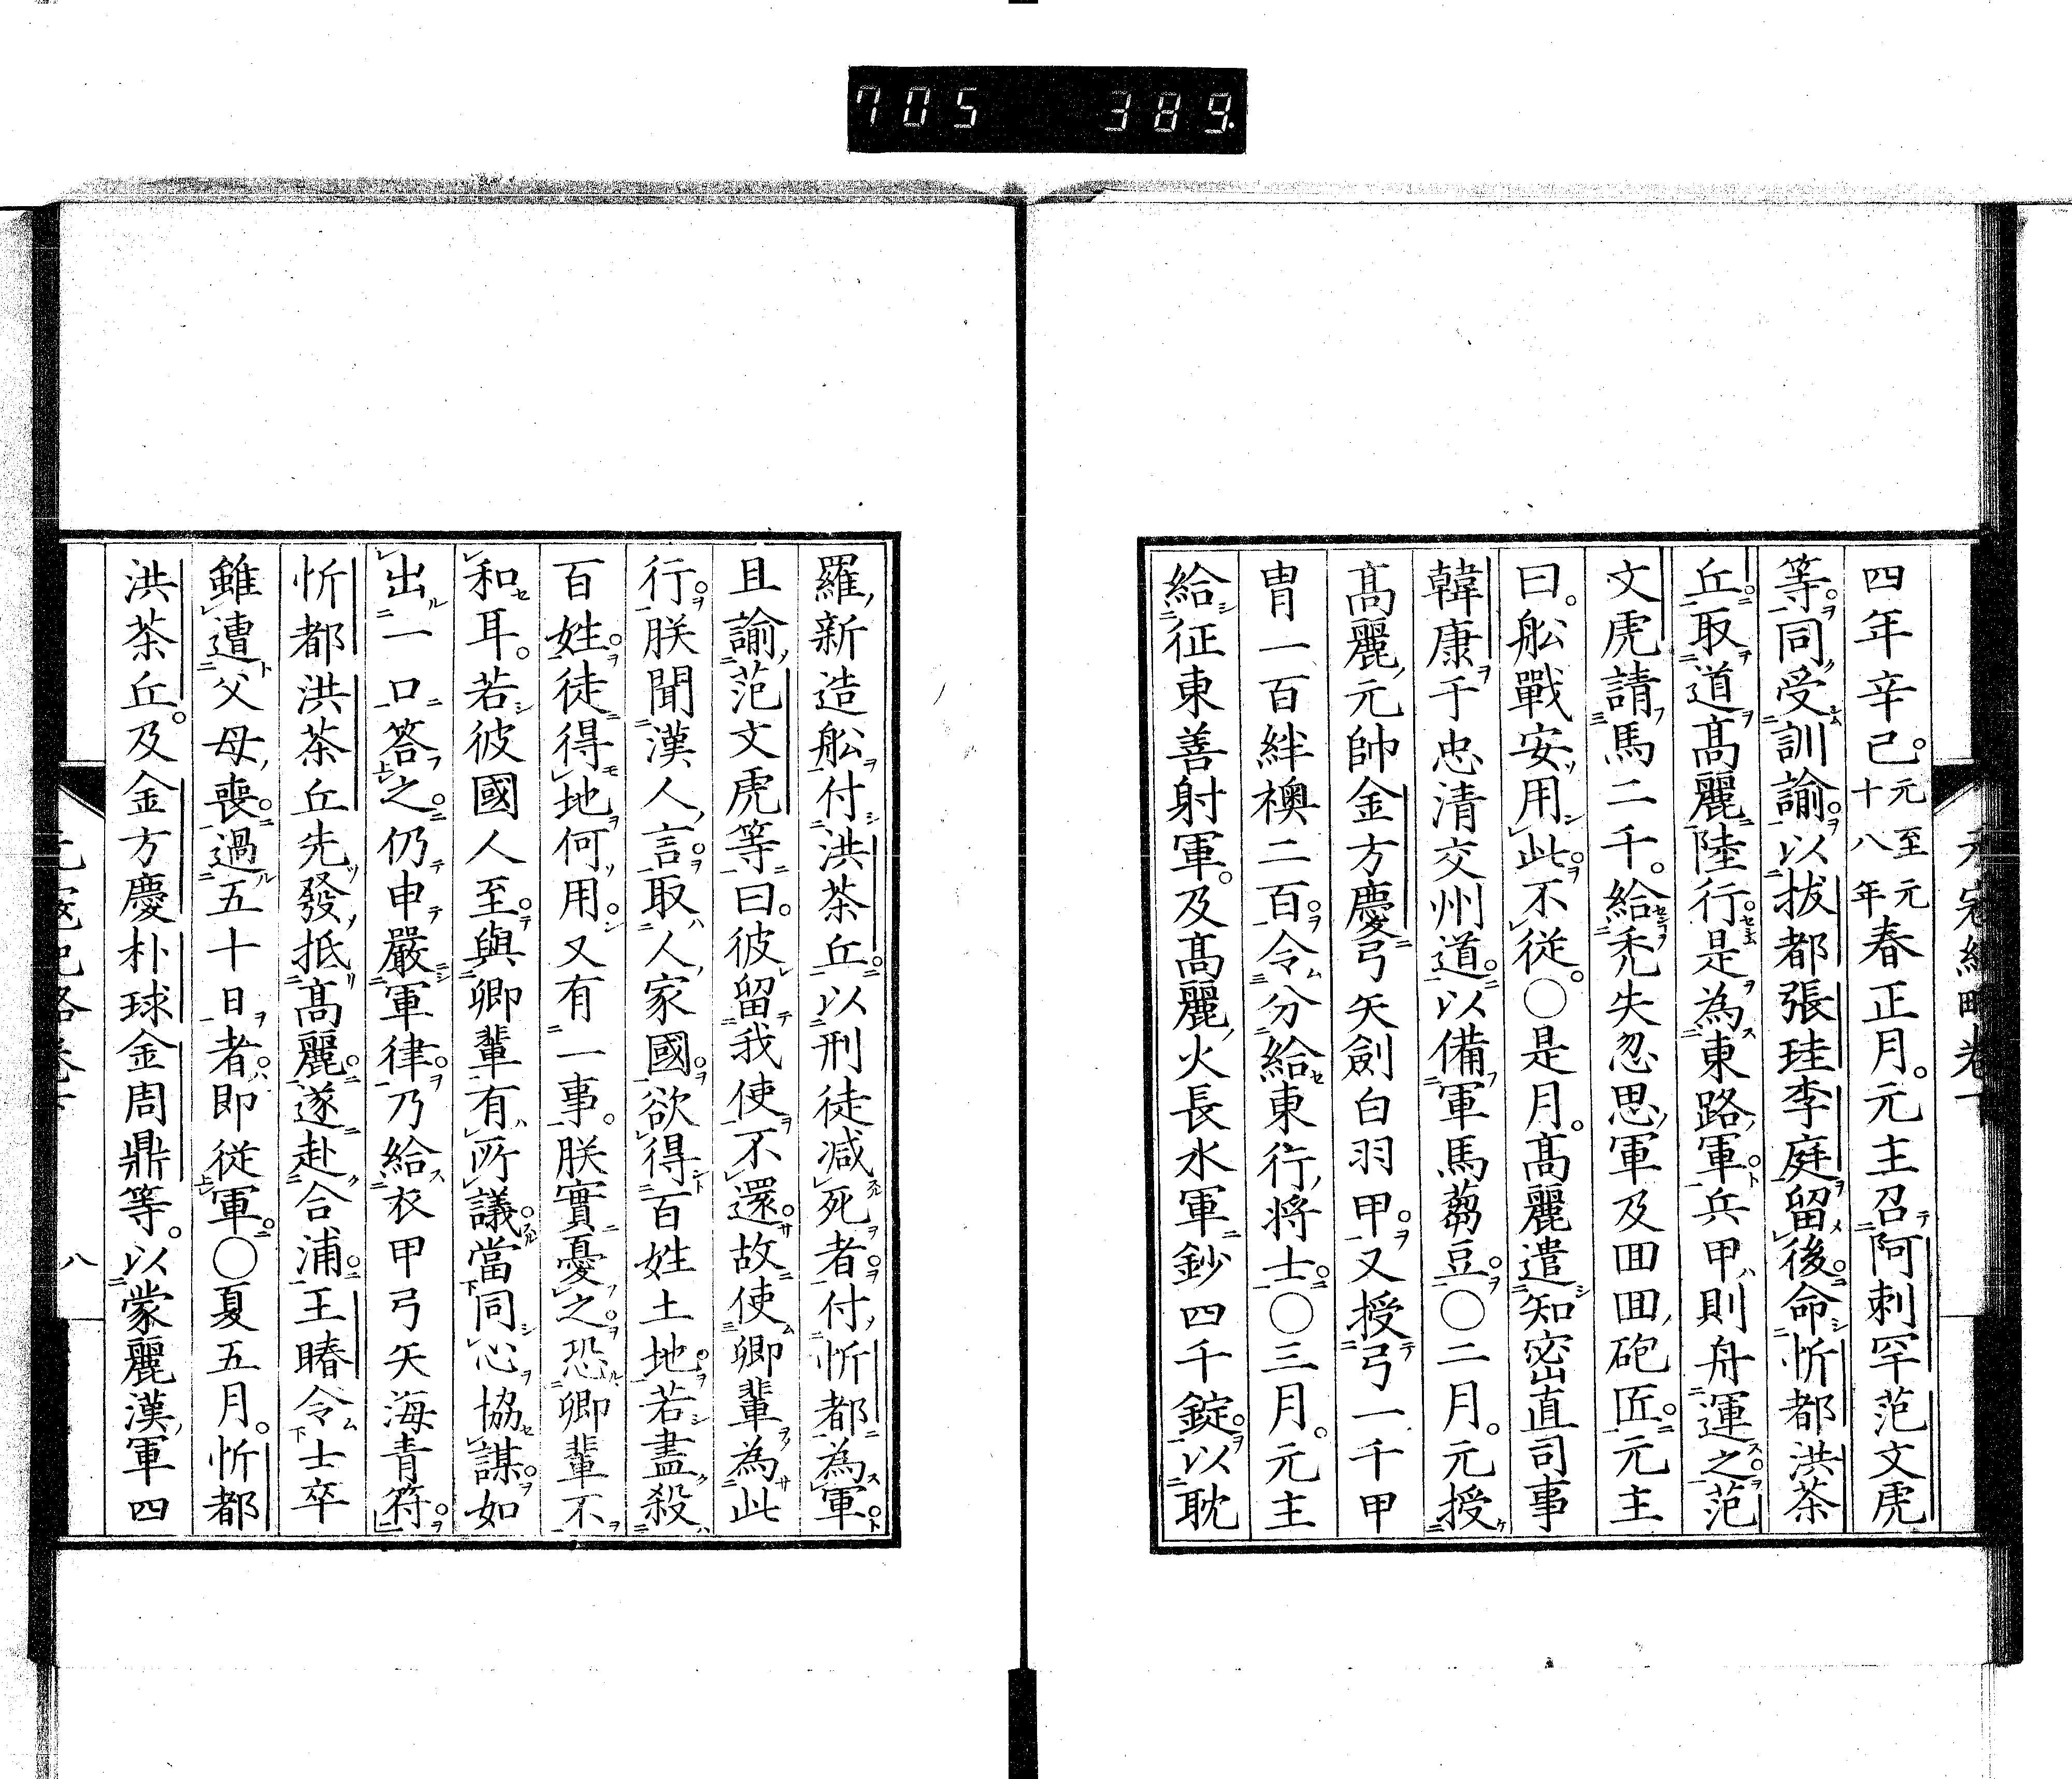 705 389
四年辛己。元至元十八年春正月。元主召阿刺罕范文虎
等。同受訓諭。以拔都張珪李庭留後。命忻都洪茶
丘。取道高麗陸行。是為東路軍。兵甲則舟運之。范
文虎請馬二千。給禿失忽思軍及囬囬砲匠。元主
曰。舩戰安用此。不従。〇是月。高麗遣知密直司事
韓康于忠清交州道。以備軍馬蒭豆。〇二月。元授
高麗元帥金方慶弓矢劍白羽甲。又授弓一千甲
冑一百絆襖二百。令分給東行将士。〇三月。元主
給征東善射軍。及高麗火長水軍鈔四千錠。以耽
羅新造舩付洪茶丘。以刑徒減死者。付忻都為軍。
且諭范文虎等曰。彼留我使不還。故使卿輩為此
行。朕聞漢人言。取人家國。欲得百姓土地。若盡殺
百姓。徒得地何用。又有一事。朕實憂之。恐卿輩不
和耳。若彼國人至。與卿輩有所議。當同心協謀。如
出一口答之。仍申嚴軍律。乃給衣甲弓矢海青符。
忻都洪茶丘先發。抵高麗。遂赴合浦。王賰令士卒
雖遭父母喪。過五十日者。即従軍。〇夏五月。忻都
洪茶丘。及金方慶朴球金周鼎等。以蒙麗漢軍四
八